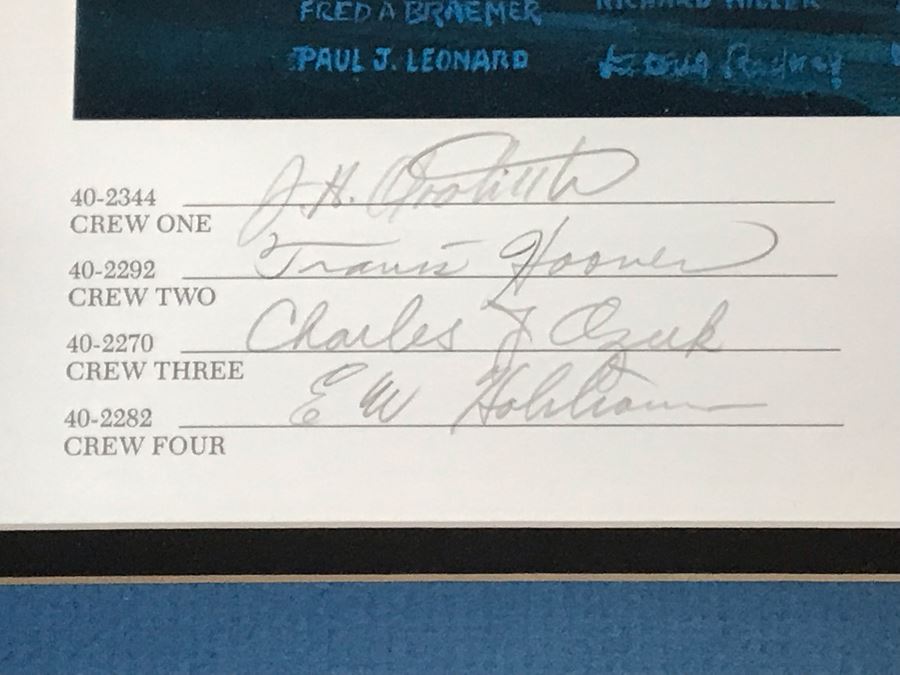 FRED A BRAEMER RICHARD MILLER
PAUL J. LEONARD
40-2344 J.H. Doolittle
CREW ONE
40-2292 Travis Hoover
CREW TWO
40-2270 Charles J Ozuk
CREW THREE
40-2282 E W Holstrom
CREW FOUR